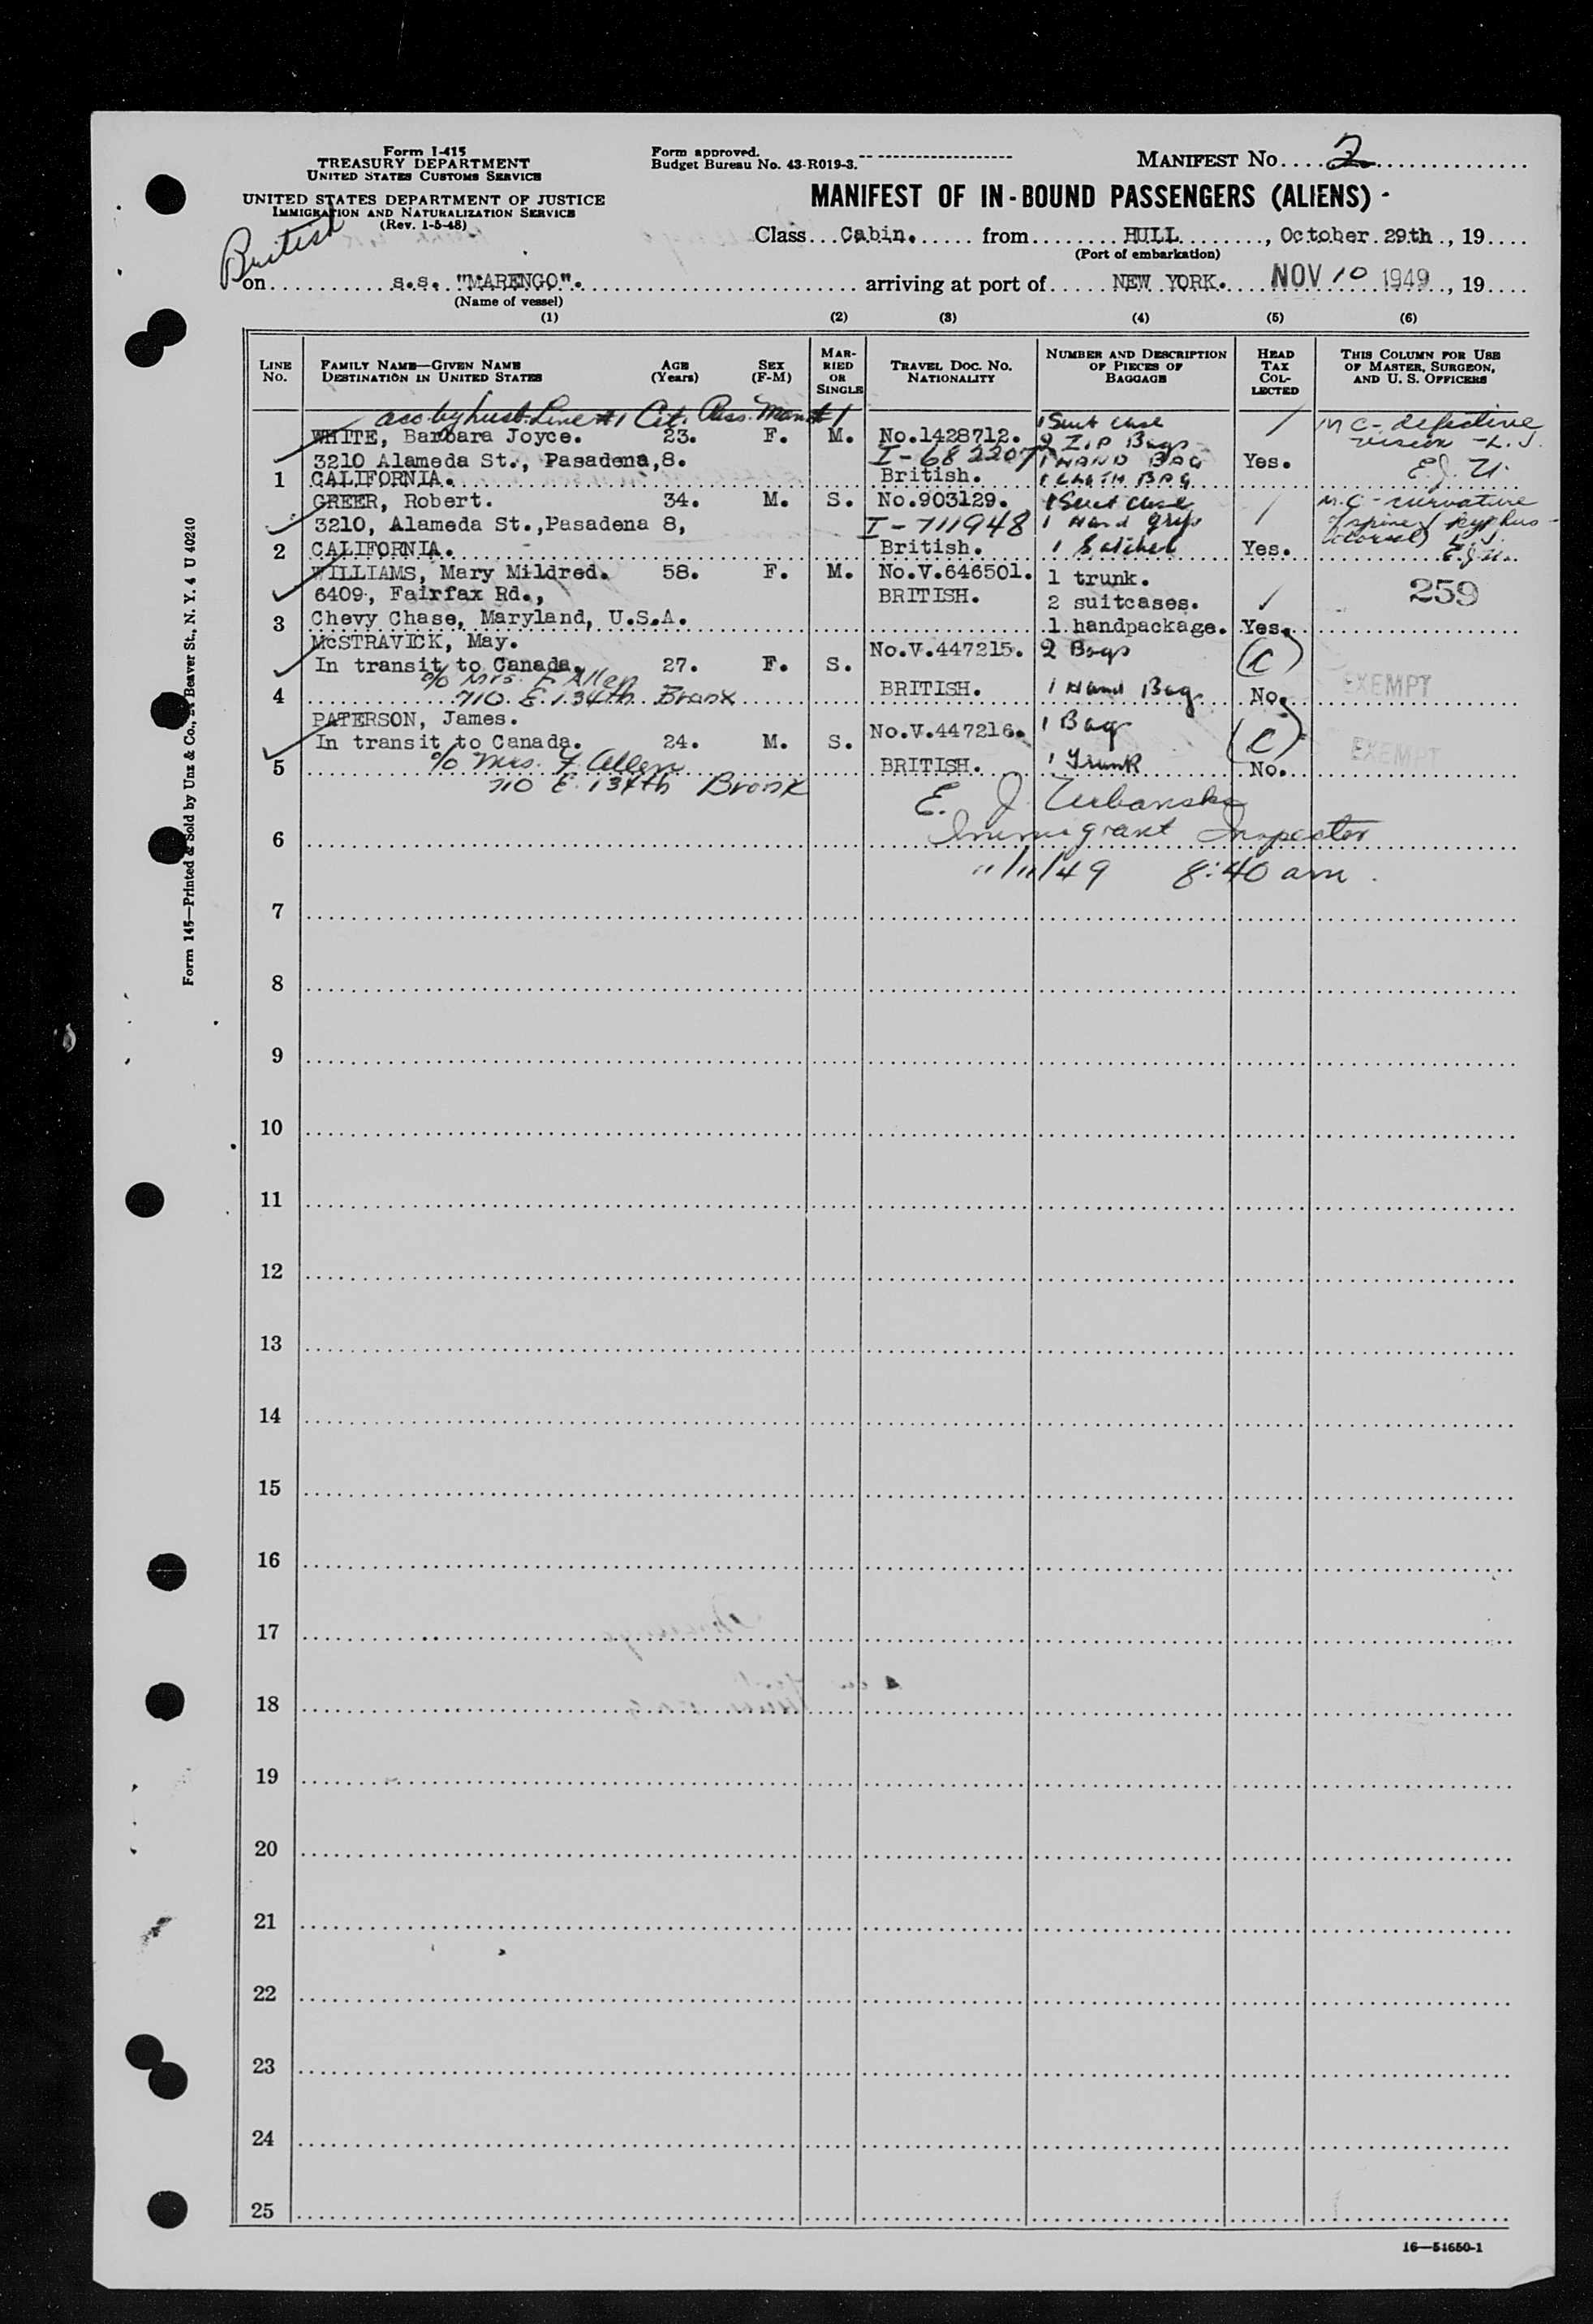 Form I-415
TREASURY DEPARTMENT
UNITED STATES CUSTOMS SERVICE
UNITED STATES DEPARTMENT OF JUSTICE
IMMIGRATION AND NATURALIZATION SERVICE
(Rev. 1-5-48)
Form approved.
Budget Bureau No. 43-R019-3.
MANIFEST No. 2
MANIFEST OF IN-BOUND PASSENGERS (ALIENS)
British
Class Cabin. from HULL, October 29th, 19
(Port of embarkation)
on s.s. "MARENGO". arriving at port of NEW YORK. NOV 10 1949, 19
(Name of vessel)
(1) (2) (3) (4) (5) (6)
LINE No. FAMILY NAME—GIVEN NAME DESTINATION IN UNITED STATES AGE (Years) SEX (F-M) MARRIED OR SINGLE TRAVEL DOC. NO. NATIONALITY NUMBER AND DESCRIPTION OF PIECES OF BAGGAGE HEAD TAX COLLECTED THIS COLUMN FOR USE OF MASTER, SURGEON, AND U. S. OFFICERS
acc by husb Line #1 Cit. Pass. Man #1 1 Suit case M C - defective
WHITE, Barbara Joyce. 23. F. M. No.1428712. 2 Zip Bags vision - L. J.
3210 Alameda St., Pasadena,8. I-682207 1 HAND BAG Yes. E.J. U.
1 CALIFORNIA. British. 1 CLOTH BAG
GREER, Robert. 34. M. S. No.903129. 1 Suit Case M.C - curvature
3210, Alameda St.,Pasadena 8, I-711948 1 Hand Grip of spine
2 CALIFORNIA. British. 1 Satchel Yes. L. J. E.J.U.
WILLIAMS, Mary Mildred. 58. F. M. No.V.646501. 1 trunk. 259
6409, Fairfax Rd., BRITISH. 2 suitcases.
3 Chevy Chase, Maryland, U.S.A. 1 handpackage. Yes.
McSTRAVICK, May. No.V.447215. 2 Bags
In transit to Canada. 27. F. S. (C)
c/o Mrs. F Allen BRITISH. 1 Hand Bag EXEMPT
4 710 E. 134th Bronx No.
PATERSON, James. No.V.447216. 1 Bag
In transit to Canada. 24. M. S. (C)
5 c/o Mrs. F Allen BRITISH. 1 Trunk No. EXEMPT
710 E. 134th Bronx
E. J. Urbanski
6 Immigrant Inspector
11/11/49 8:40 am.
7
8
9
10
11
12
13
14
15
16
17
18
19
20
21
22
23
24
25
16—51650-1
Form 145—Printed & Sold by Unz & Co., Beaver St., N. Y. 4 U 40240